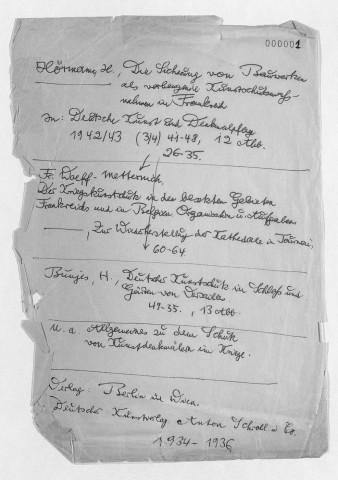 000001
Hörmann, H., Die Sicherung von Bauwerken
als vorbeugende Kunstschutzmaß-
nahmen in Frankreich
In: Deutsche Kunst und Denkmalpflege
1942/43 (3/4) 41-48, 12 Abb.
26-35.
Fr. Wolff-Metternich,
Der Kriegskunstschutz in den besetzten Gebieten
Frankreichs und in Belgien Organisation u. Aufgaben
Zur Wiederherstellung der Kathedrale in Tournai,
60-64
Bunjes, H., Deutscher Kunstschutz in Schloß und
Gärten von Versailles
49-35., 13 Abb.
u. a. Allgemeines zu dem Schutz
von Kunstdenkmälern im Kriege.
Verlag: Berlin u. Wien.
Deutscher Kunstverlag u. Anton Schroll u. Co.
1934-1936